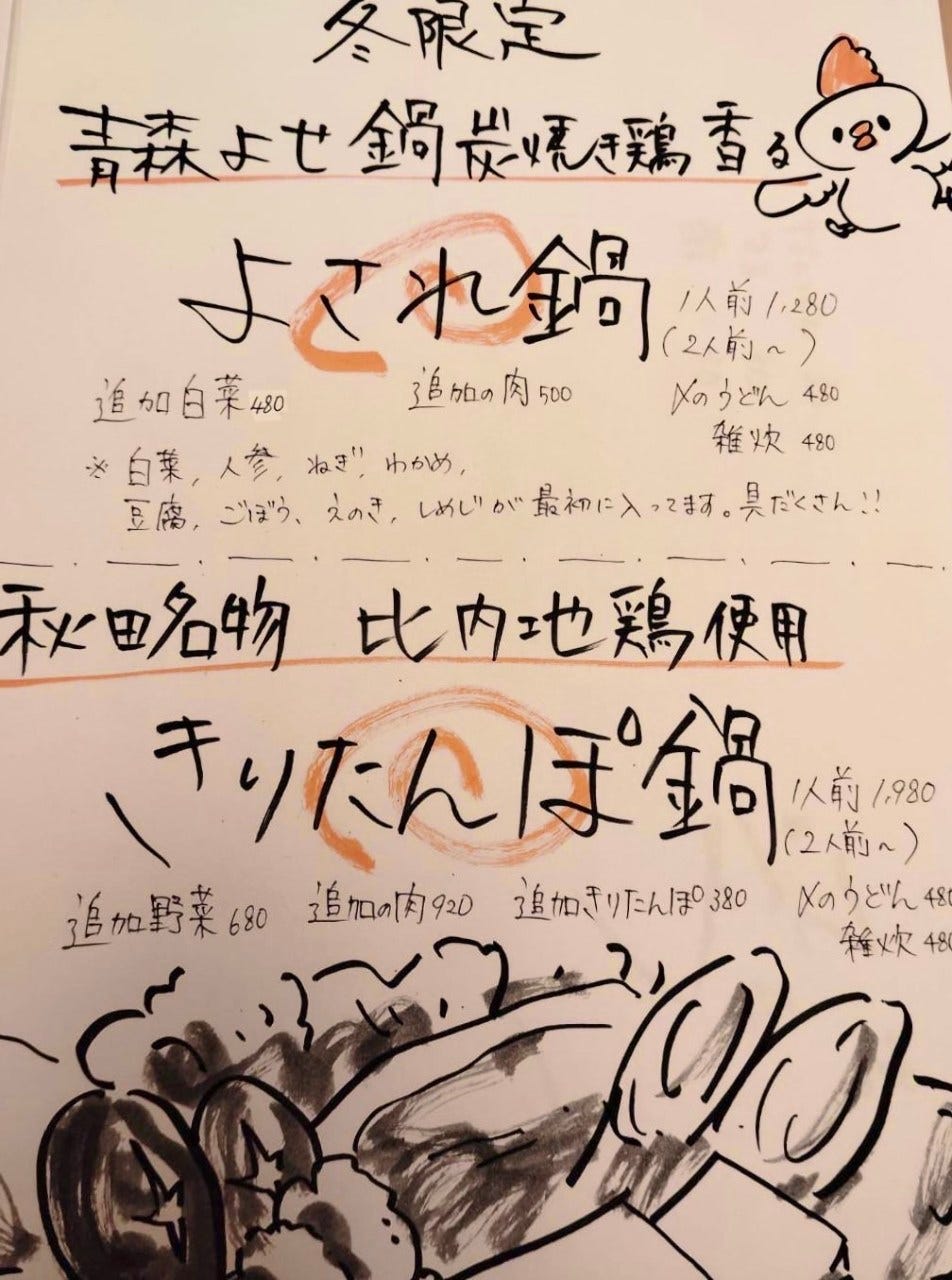 冬限定
青森よせ鍋炭焼き鶏香る
よされ鍋
1人前 1,280
(2人前〜)
追加白菜480 追加の肉500 〆のうどん 480
雑炊 480
※ 白菜, 人参, ねぎ, わかめ,
豆腐, ごぼう, えのき, しめじが最初に入ってます。具だくさん!!
秋田名物 比内地鶏使用
きりたんぽ鍋
1人前 1,980
(2人前〜)
追加野菜680 追加の肉920 追加きりたんぽ380 〆のうどん480
雑炊 480